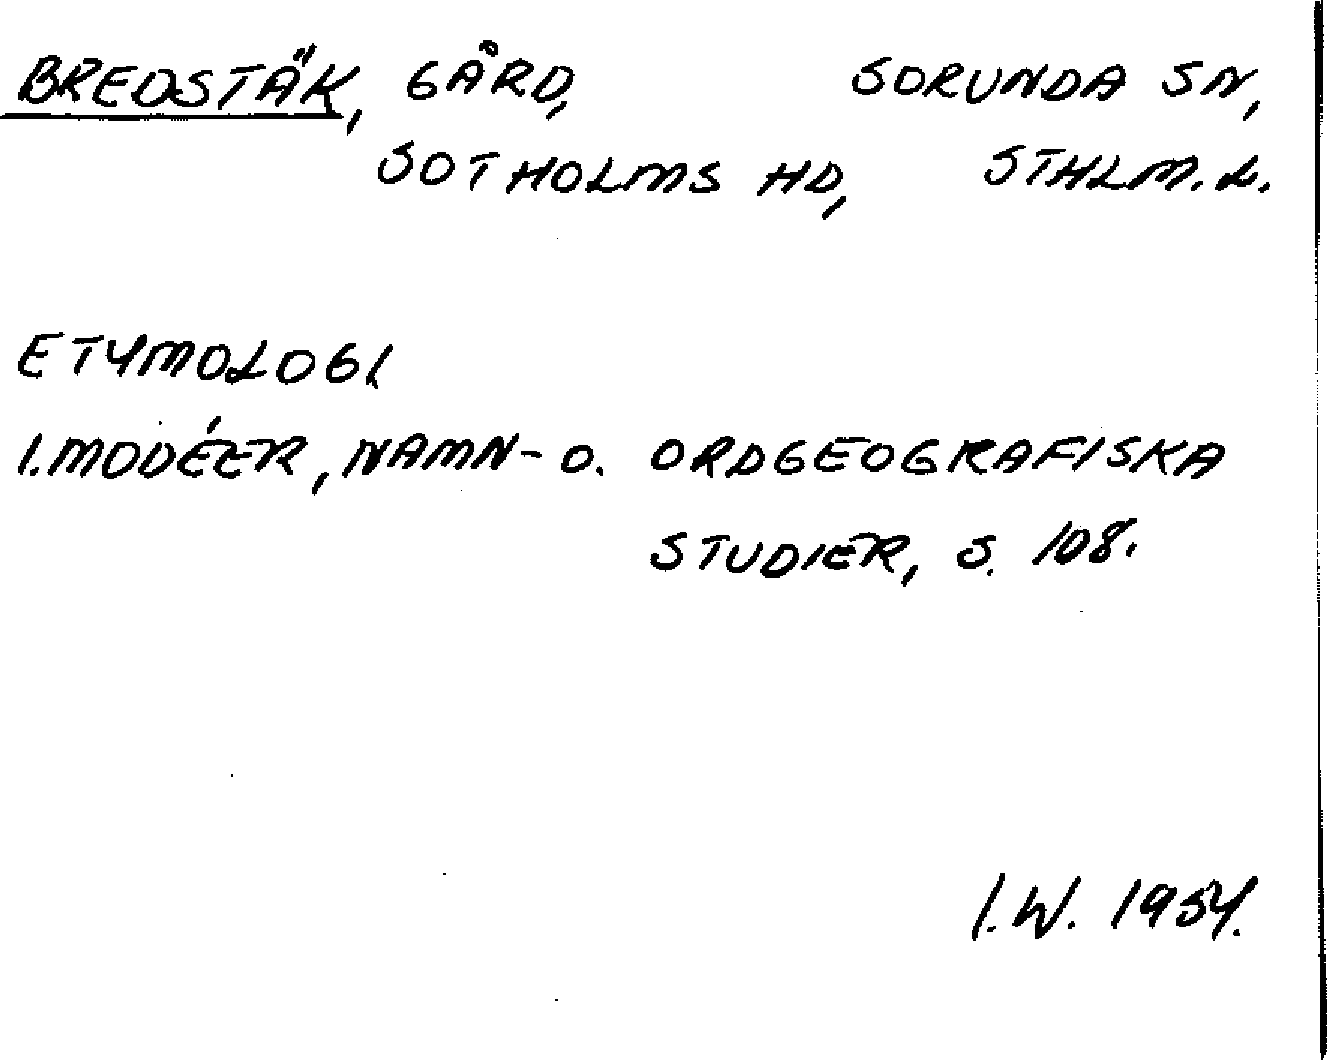 BREDSTÄK, GÅRD, SORUNDA SN,
SOTHOLMS HD, STHLM.L.
ETYMOLOGI
I. MODÉER, NAMN- O. ORDGEOGRAFISKA
STUDIER, S. 108.
I.W. 1954.